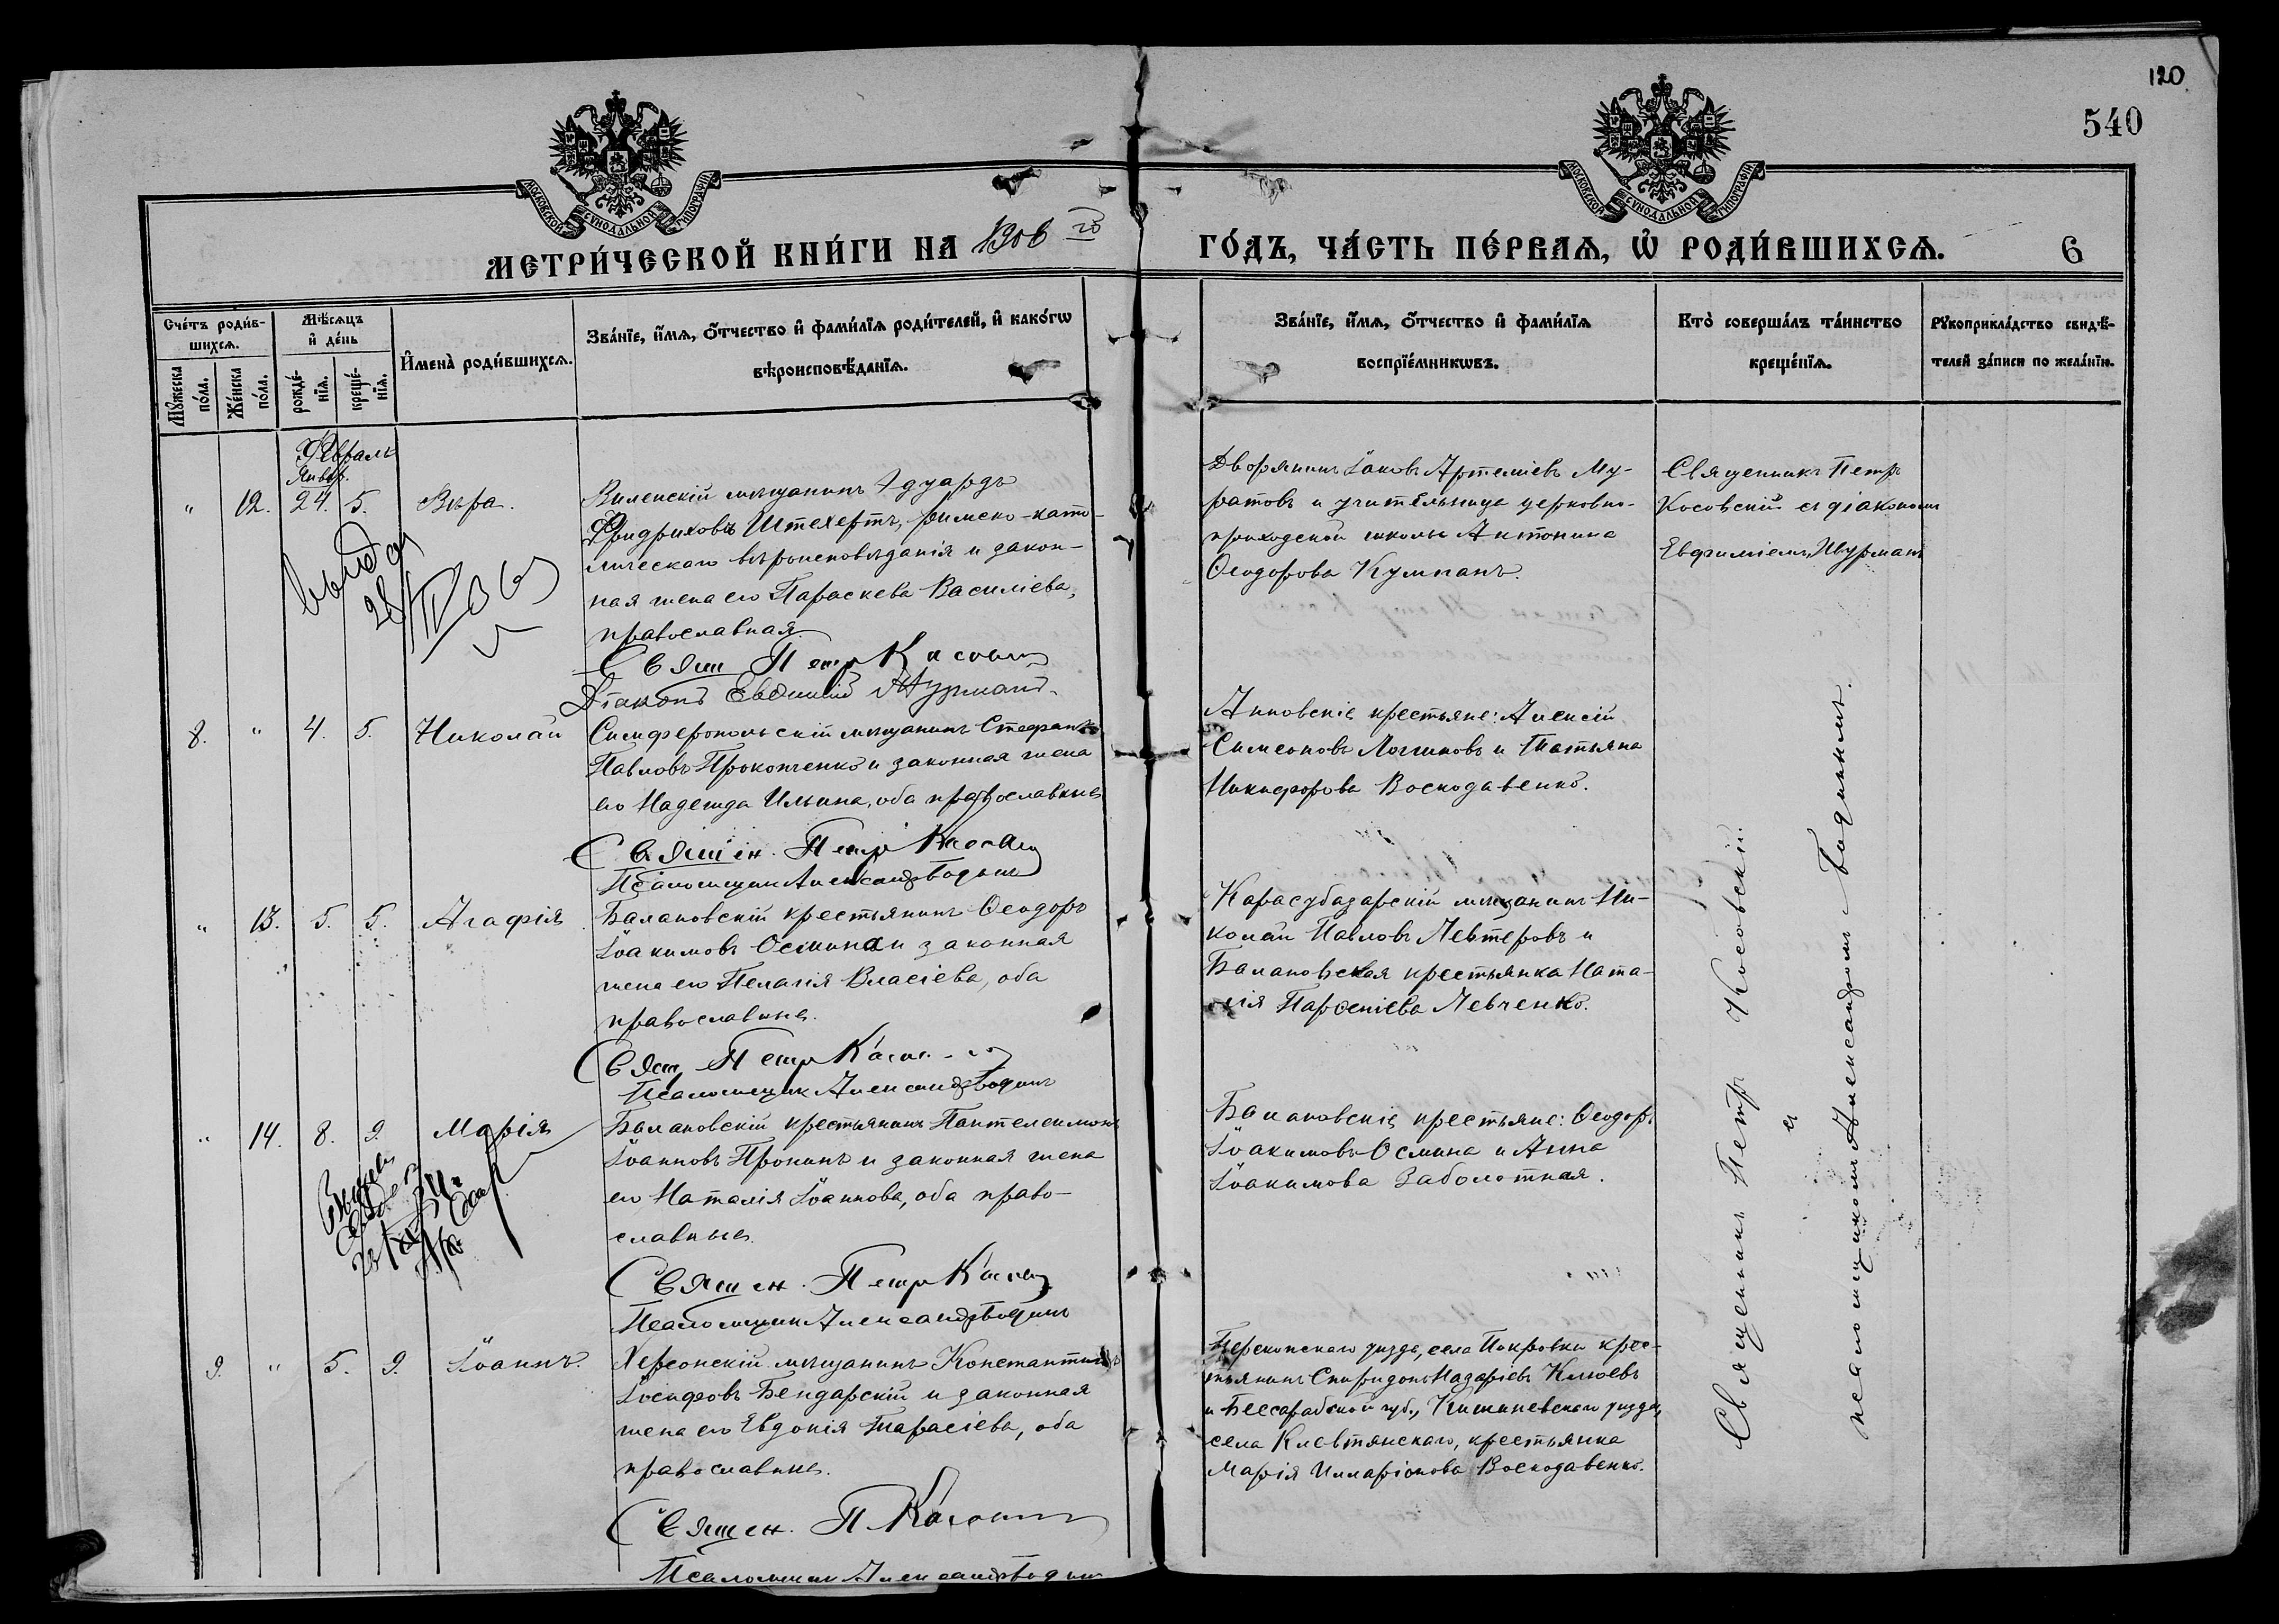 120
540
МОСКОВСКОЙ СУНОДАЛЬНОЙ ТИПОГРАФІИ
МОСКОВСКОЙ СУНОДАЛЬНОЙ ТИПОГРАФІИ
МЕТРИ́ЧЕСКОЙ КНИ́ГИ НА 1906 го ГО́ДЪ, ЧА́СТЬ ПЕ́РВАѦ, Ѡ҆ РОДИ́ВШИХСѦ. 6
Сче́тъ роди́в-
шихсѧ.
Мꙋ́жеска по́ла.
Же́нска по́ла.
Мѣ́сѧцъ и҆ де́нь
рожде́-нїѧ.
креще́-нїѧ.
И҆мена̀ роди́вшихсѧ.
Зва́нїе, и҆́мѧ, ѻ҆́тчество и҆ фами́лїѧ роди́телей, и҆ како́гѡ
вѣроисповѣ́данїѧ.
Зва́нїе, и҆́мѧ, ѻ҆́тчество и҆ фами́лїѧ
воспрїе́мникѡвъ.
Кто̀ соверша́лъ та́инство
креще́нїѧ.
Рꙋкоприкла́дство свидѣ́-
телей за́писи по жела́нїю.
Февраль
Январ.
" 12. 24. 5. Вѣра.
Виленскій мѣщанинъ Эдуардъ
Фридриховъ Штехертъ, римско-като-
лическаго вѣроисповѣданія и закон-
ная жена его Параскева Василіева,
православная.
Свящ Петръ Косовскій
Діаконъ Евфимій Шурманъ.
Дворянинъ Іаковъ Артеміевъ Му-
ратовъ и учительница церковно-
приходской школы Антонина
Ѳеодорова Кумпанъ.
Священникъ Петръ
Косовскій съ діакономъ
Евфиміемъ Шурманъ
8. " 4. 5. Николай
Симферопольскій мѣщанинъ Стефанъ
Павловъ Прокопченко и законная жена
его Надежда Ильина, оба православные
Священ. Петръ Косовскій
Псаломщикъ Александръ Бодинъ
Анновскіе крестьяне: Алексій
Симеоновъ Логиновъ и Татьяна
Никифорова Воскодавенко.
" 13. 5. 5. Агафія
Балановскій крестьянинъ Ѳеодоръ
Іоакимовъ Осмина и законная
жена его Пелагія Власіева, оба
православные.
Свящ Петръ Косовскій
Псаломщик Александръ Бодинъ
Карасубазарскій мѣщанинъ Ни-
колай Павловъ Левтеровъ и
Балановская крестьянка Ната-
лія Парѳеніева Левченко.
" 14. 8. 9. Марія
Балановскій крестьянинъ Пантелеимонъ
Іоанновъ Пронинъ и законная жена
его Наталія Іоаннова, оба право-
славные.
Священ. Петръ Косовскій
Псаломщик Александръ Бодинъ
Балановскіе крестьяне: Ѳеодоръ
Іоакимовъ Осмина и Анна
Іоакимова Заболотная.
9. " 5. 9. Іоаннъ.
Херсонскій мѣщанинъ Константинъ
Іосифовъ Бендарскій и законная
жена его Евдокія Тарасіева, оба
православные.
Священ. П Косовскій
Псаломщик Александръ Бодинъ
Перекопскаго уѣзда, села Покровки крес-
тьянинъ Спиридонъ Назаріевъ Клюевъ
и Бессарабской губ., Кишиневскаго уѣзда,
села , крестьянка
Марія Илларіонова Воскодавенко.
Священникъ Петръ Косовскій
съ
псаломщикомъ Александромъ Бодинымъ.